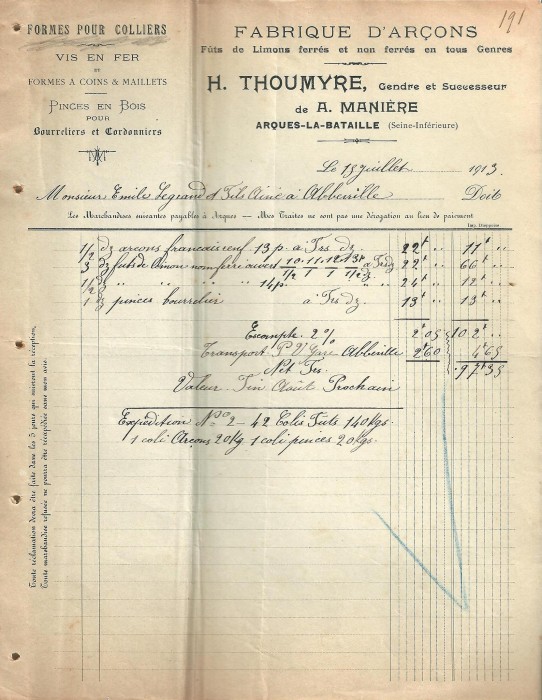 191
FORMES POUR COLLIERS
VIS EN FER
ET
FORMES A COINS & MAILLETS
PINCES EN BOIS
POUR
Bourreliers et Cordonniers
FABRIQUE D'ARÇONS
Fûts de Limons ferrés et non ferrés en tous Genres
H. THOUMYRE, Gendre et Successeur
de A. MANIÈRE
ARQUES-LA-BATAILLE (Seine-Inférieure)
Le 15 Juillet 1913.
Monsieur Emile Legrand & Fils Ainé à Abbeville Doit
Les Marchandises suivantes payables à Arques — Mes Traites ne sont pas une dérogation au lieu de paiement
1/2 dz arçons francais neuf 13 p. a Frs dz 22f " 11f "
3 dz futs de limon non ferré ouvert 10 11 12 13p a Frs dz 22f " 66f "
1/2 1 1 1/2 dz
1/2 " " " " " 14p. 24f " 12f "
1 dz pinces bourrelier a Frs dz. 13f " 13f "
Escompte 2% 2f05 102f "
Transport P.V. Gare Abbeville 2f60 4f65
Net Frs. 97f35
Valeur Fin Août Prochain
Expedition Nº 2 - 42 Colis Fûts 140 Kgs.
1 coli Arçons 20 Kg 1 coli pinces 20 Kgs.
Toute réclamation devra être faite dans les 3 jours qui suivront la réception.
Toute marchandise refusée ne pourra être réexpédiée sans mon avis.